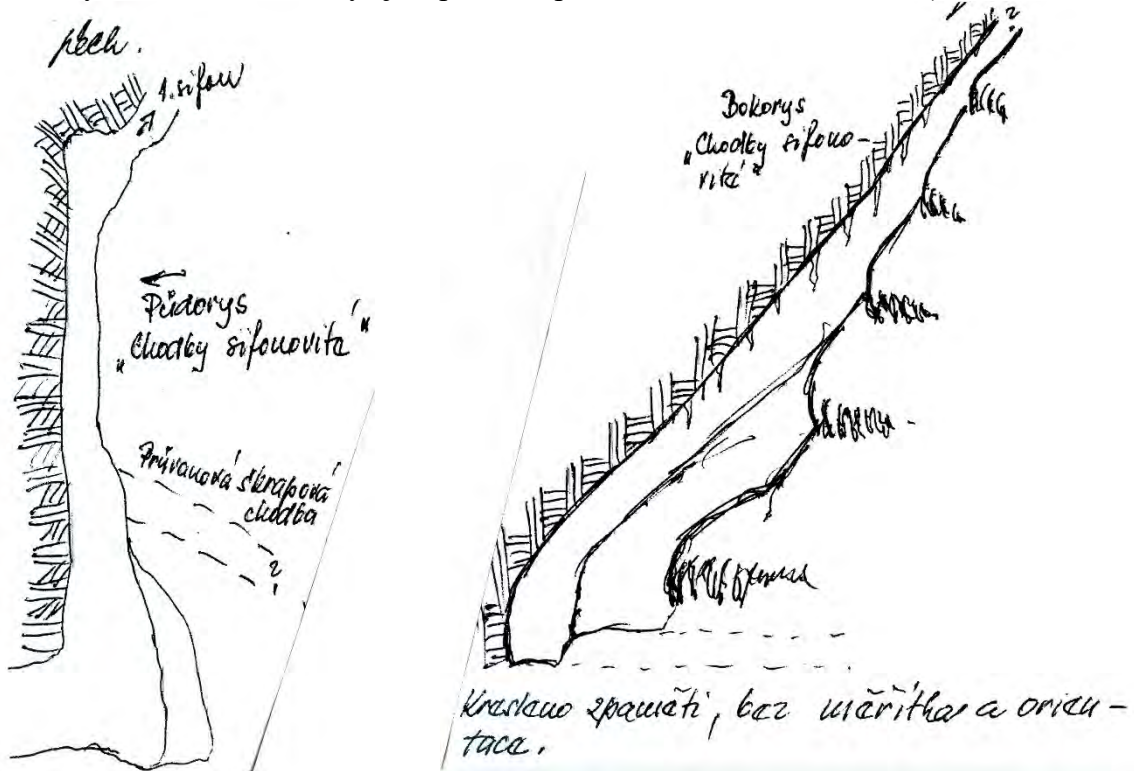 pěch.
1. sifon
Půdorys
"Chodby sifonovitá"
Průvanová škrapová
chodba
?
Bokorys
"Chodby sifono-
vitá"
?
Kresleno zpaměti, bez měřítka a orien-
tace.